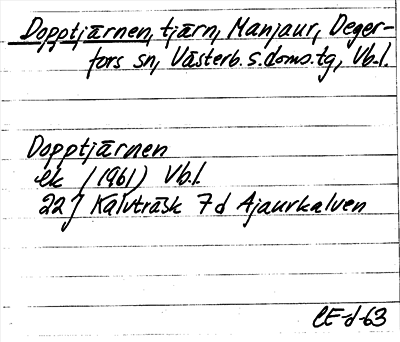 Dopptjärnen, tjärn, Manjaur, Deger-
fors sn, Västerb. s. doms.tg, Vb.l.
Dopptjärnen
ek (1961) Vb.l.
22J Kalvträsk 7d Ajaurkalven
CE-d-63